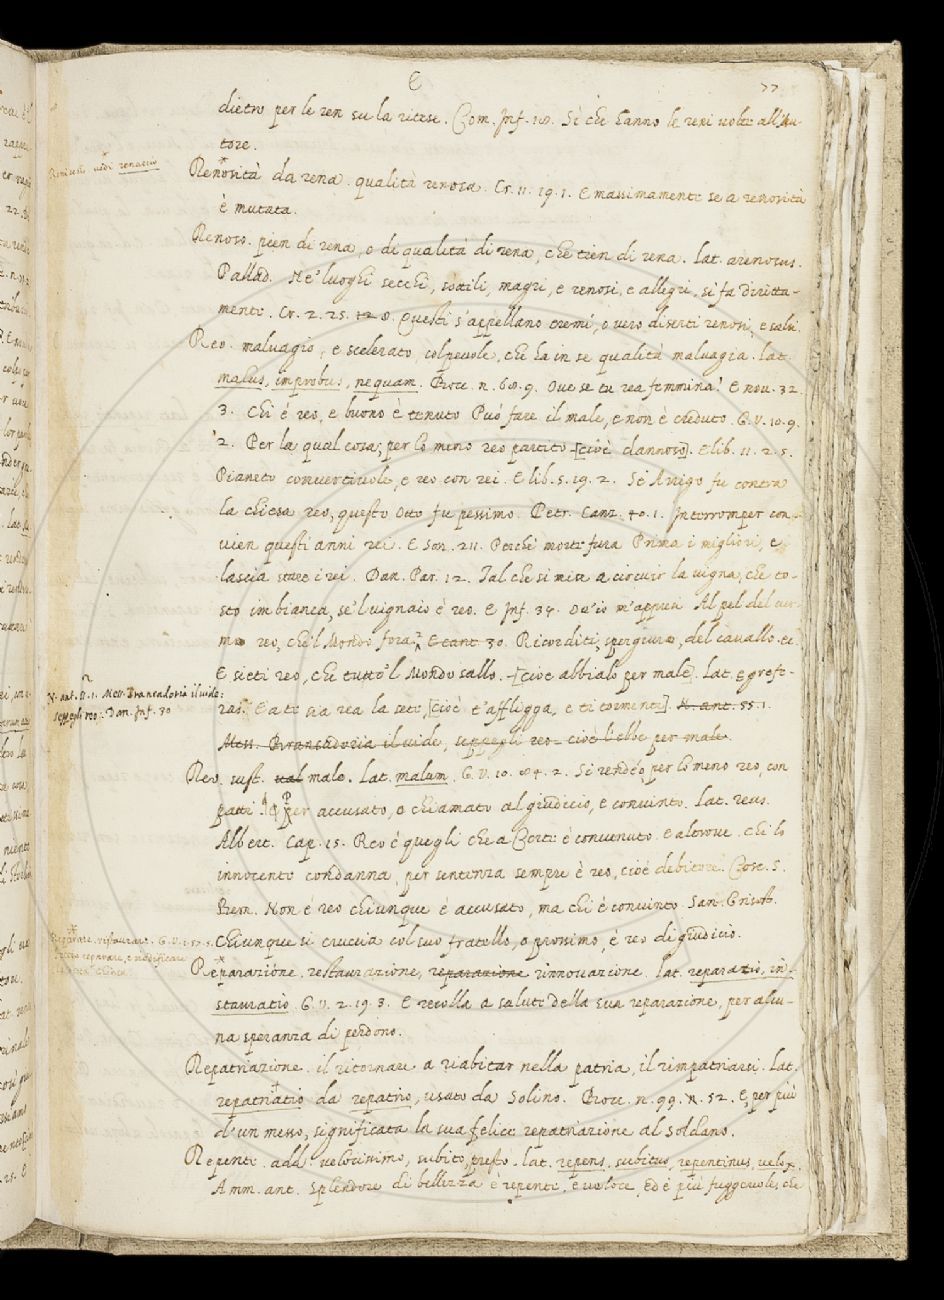 E
77
dietro per le ren su la ritese. Com. Inf. 18. Sì che hanno le reni volte all'Au-
tore.
Renosità da rena. qualità renosa. Cr. 11. 19. 1. E massimamente se a renosità
è mutata.
Renoso. pien di rena, o di qualità di rena, che tien di rena. lat. arenosus.
Pallad. Ne' luoghi secchi, sottili, magri, e renosi, e allegri, si fa diritta-
mente. Cr. 2. 25. 8. Questi s'appellano eremi, o vero diserti renosi, e salsi.
Reo. malvagio, e scelerato, colpevole, che ha in se qualità malvagia. lat.
malus, improbus, nequam. Bocc. n. 68. 9. Ove se tu rea femmina? E nov. 32.
3. Chi è reo, e buono è tenuto Può fare il male, e non è creduto. G. V. 10. 9.
2. Per la qual cosa, per lo meno reo partito [cioè dannoso]. E lib. 11. 2. 5.
Pianeto convertivole, e reo con rei. E lib. 5. 19. 2. Se Arrigo fu contra
la chiesa reo, questo Otto fu pessimo. Petr. Canz. 40. 1. Interromper con-
vien questi anni rei. E Son. 211. Perchè morte fura Prima i migliori, e
lascia stare i rei. Dan. Par. 12. Tal che si mise a circuir la vigna, che to-
sto imbianca, se'l vignaio è reo. E Inf. 34. Ov'io m'appresi Al pel del ver-
mo reo, che'l Mondo fora. E cant. 30. Ricorditi, spergiuro, del cavallo. ec.
E sieti reo, che tutto'l Mondo sallo. [cioè abbialo per male]. lat. egre fe-
ras. E a te sia rea la sete, [cioè t'affligga, e ti tormenti]. N. ant. 55. 1.
Mess. Brancadoria il vide, seppegli reo cioè l'ebbe per male.
Reo. sust. val male. lat. malum. G. V. 10. 84. 2. Si rendéo, per lo meno reo, con
patti. per accusato, o chiamato al giudicio, e convinto. lat. reus.
Albert. Cap. 15. Reo è quegli che a Corte è convenuto. e altrove. chi lo
innocente condanna, per sentenza sempre è reo, cioè debitore. Cosc. S.
Bern. Non è reo chiunque è accusato, ma chi è convinto. San. Grisost.
Chiunque si cruccia col suo fratello, o prossimo, è reo di giudicio.
Reparazione. restaurazione, reparazione rinnovazione. lat. reparatio, in-
stauratio. G. V. 2. 19. 3. E recolla a salute della sua reparazione, per alcu-
na speranza di perdono.
Repatriazione. il ritornare a riabitar nella patria, il rimpatriarsi. lat.
repatriatio da repatrio, usato da Solino. Bocc. n. 99. n. 52. E, per più
d'un messo, significata la sua felice repatriazione al Soldano.
Repente. add. velocissimo, subito, presto. lat. repens, subitus, repentinus, velox.
Amm. ant. Splendore di bellezza è repente, è veloce, ed è più fuggevole, che
Renicesto vedi renaccio
N. ant. 55. 1. Mess. Brancadoria il vide:
seppegli reo. Dan. Inf. 30
Reparare. ristaurare. G. V. 1. 57. 5.